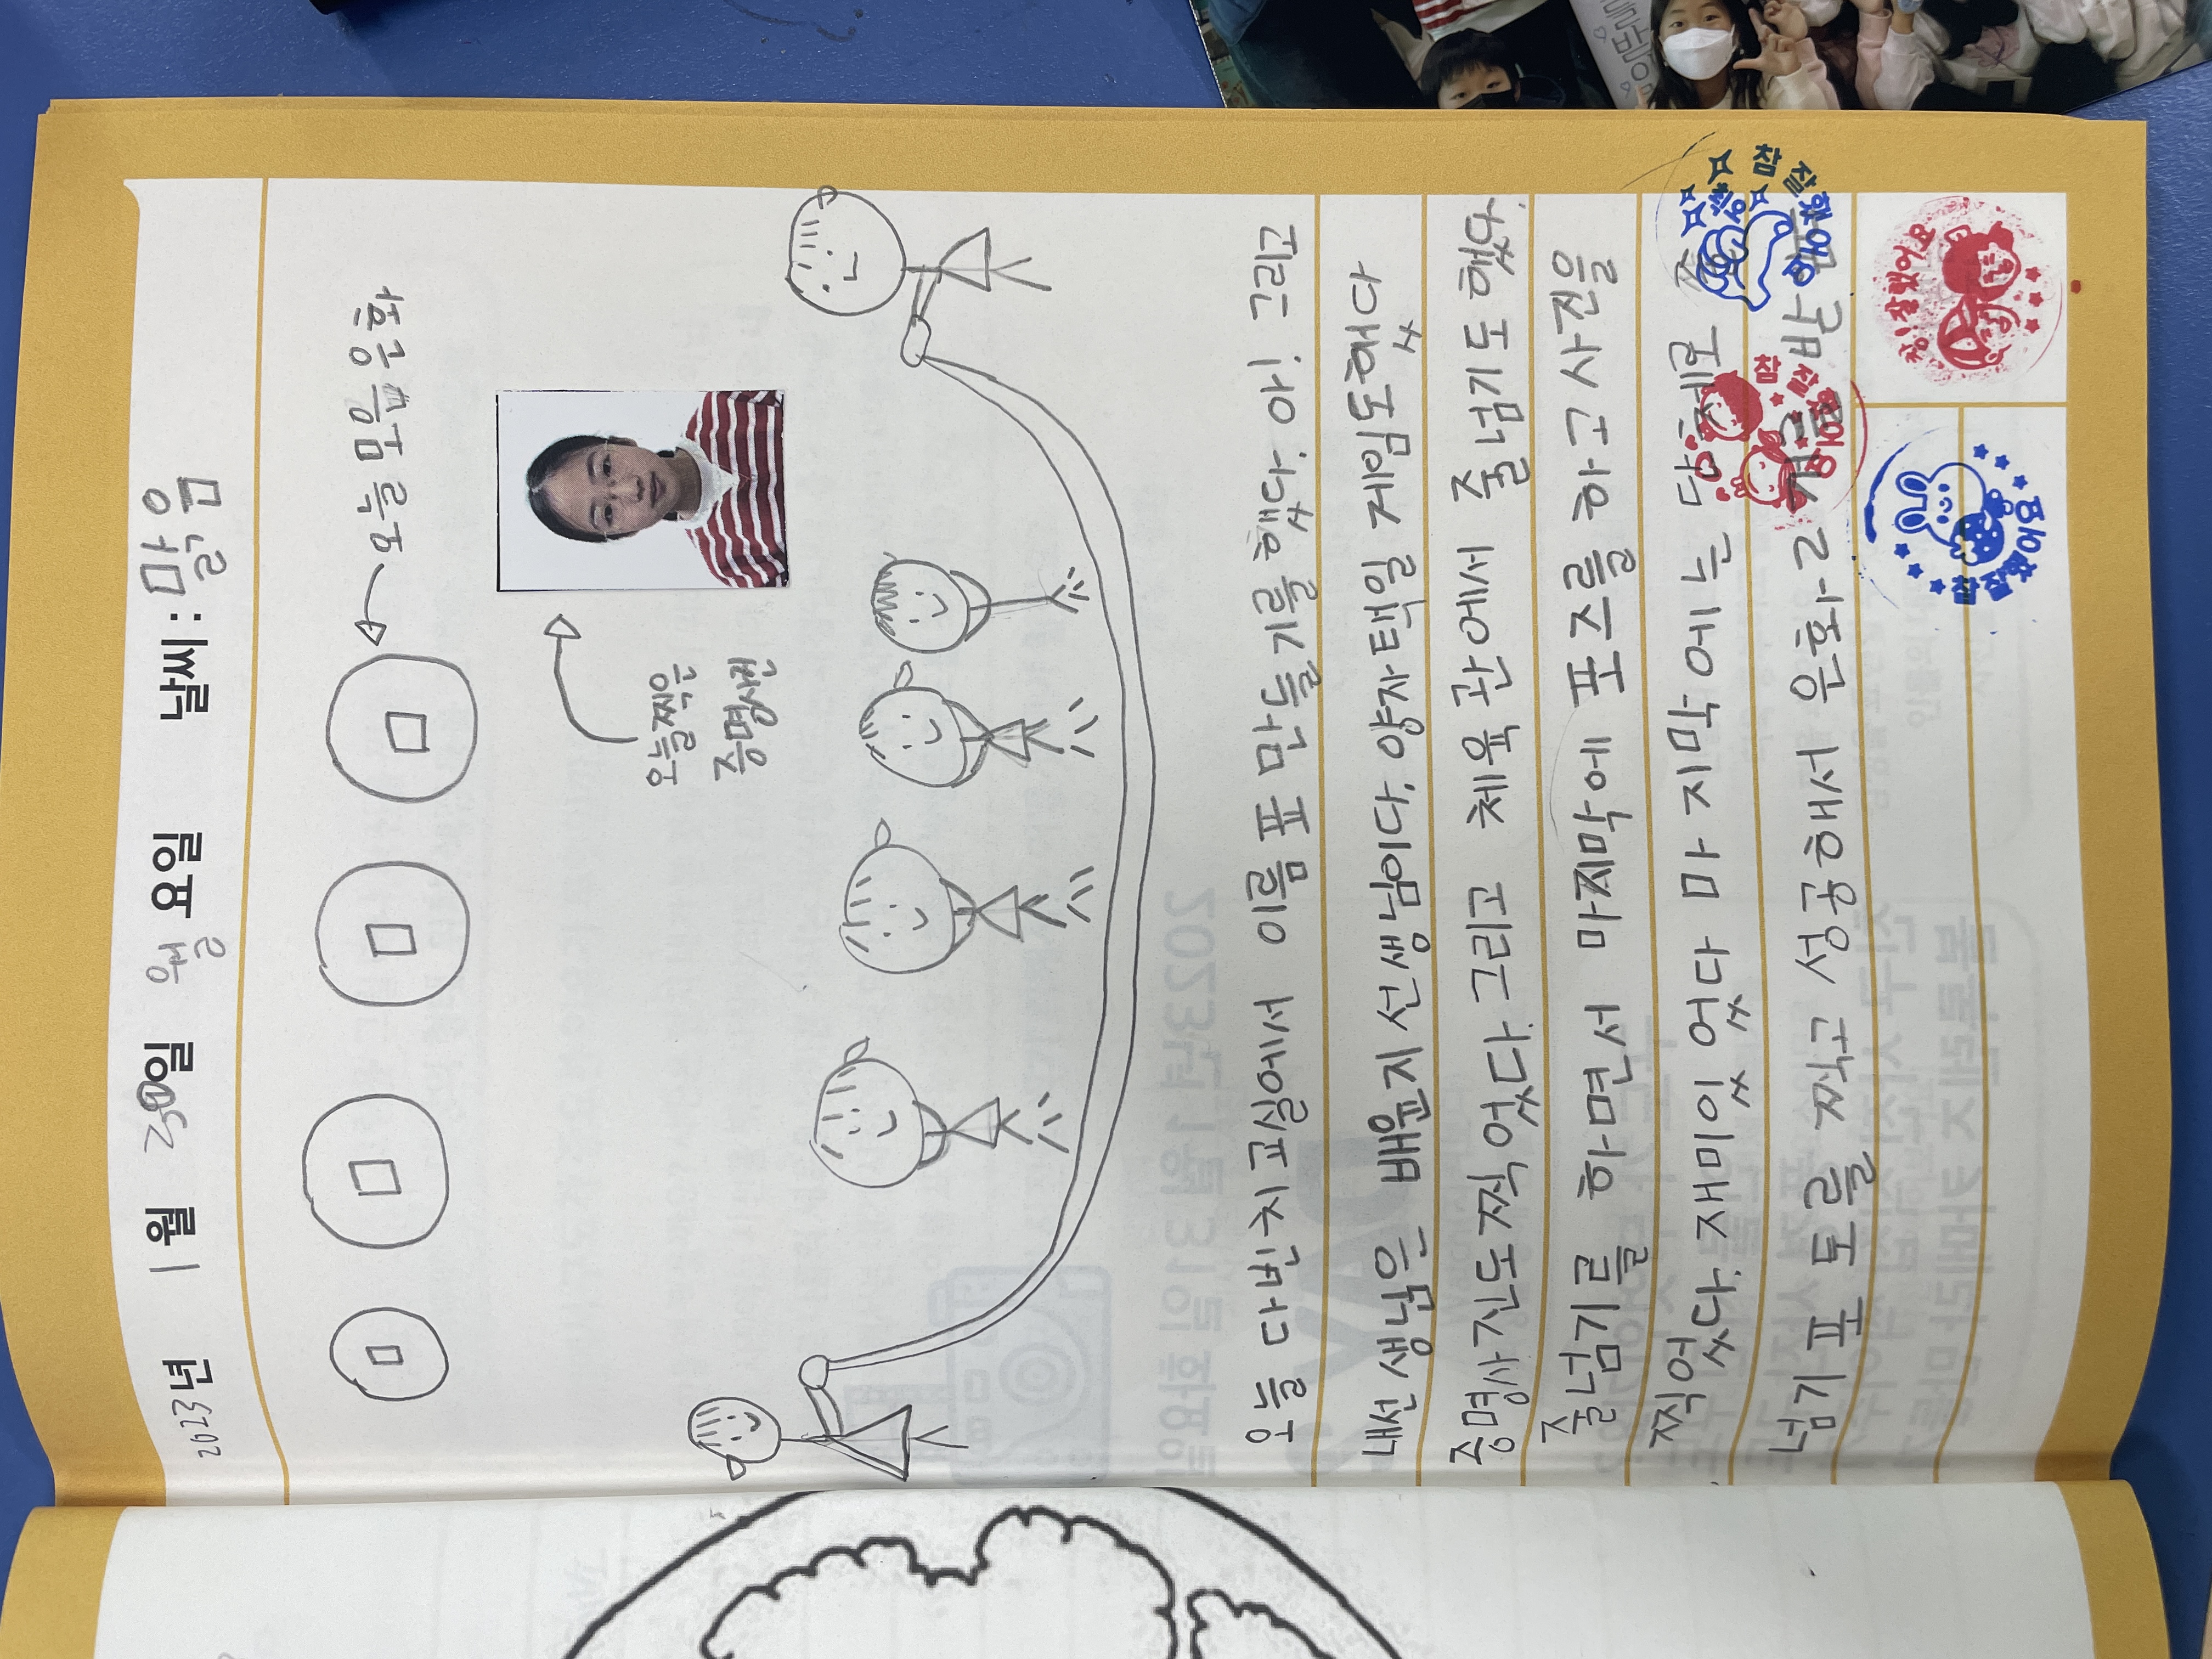 2023년 1월 30일 월요일 날씨 : 맑음
오늘 모음 은화
오늘 찍은
증명사진
오늘 다빈치 교실에서 이름표 만들기를 했다. 아! 그리고
내선생님은 배윤지 선생님이다. 양자택일 게임도했다
증명사진도 찍었다. 그리고 체육관에서 줄넘기도 했다.
줄넘기를 하면서 마지막에 포즈를 하고 사진을
찍었다. 재미있었다 마지막에는 단체로
넘기 포토를 찍고 성공해서 은화 2개를 받
참 잘했어요
참 잘했어요
참 잘했어요
참! 잘했어요
2023년 1월 31일 화요일
DAY 2